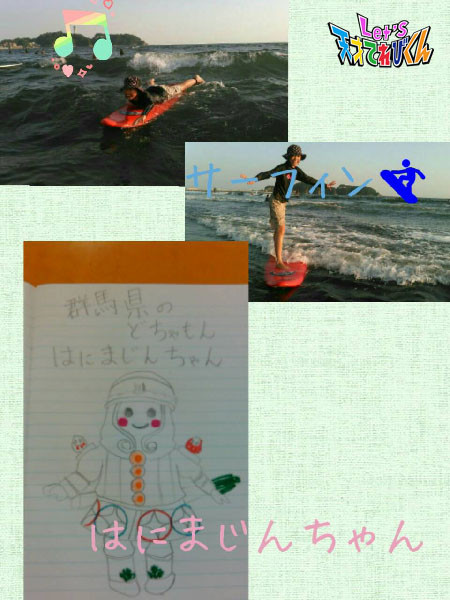 Let's
天才てれびくん
サーフィン
群馬県の
どちゃもん
はにまじんちゃん
はにまじんちゃん